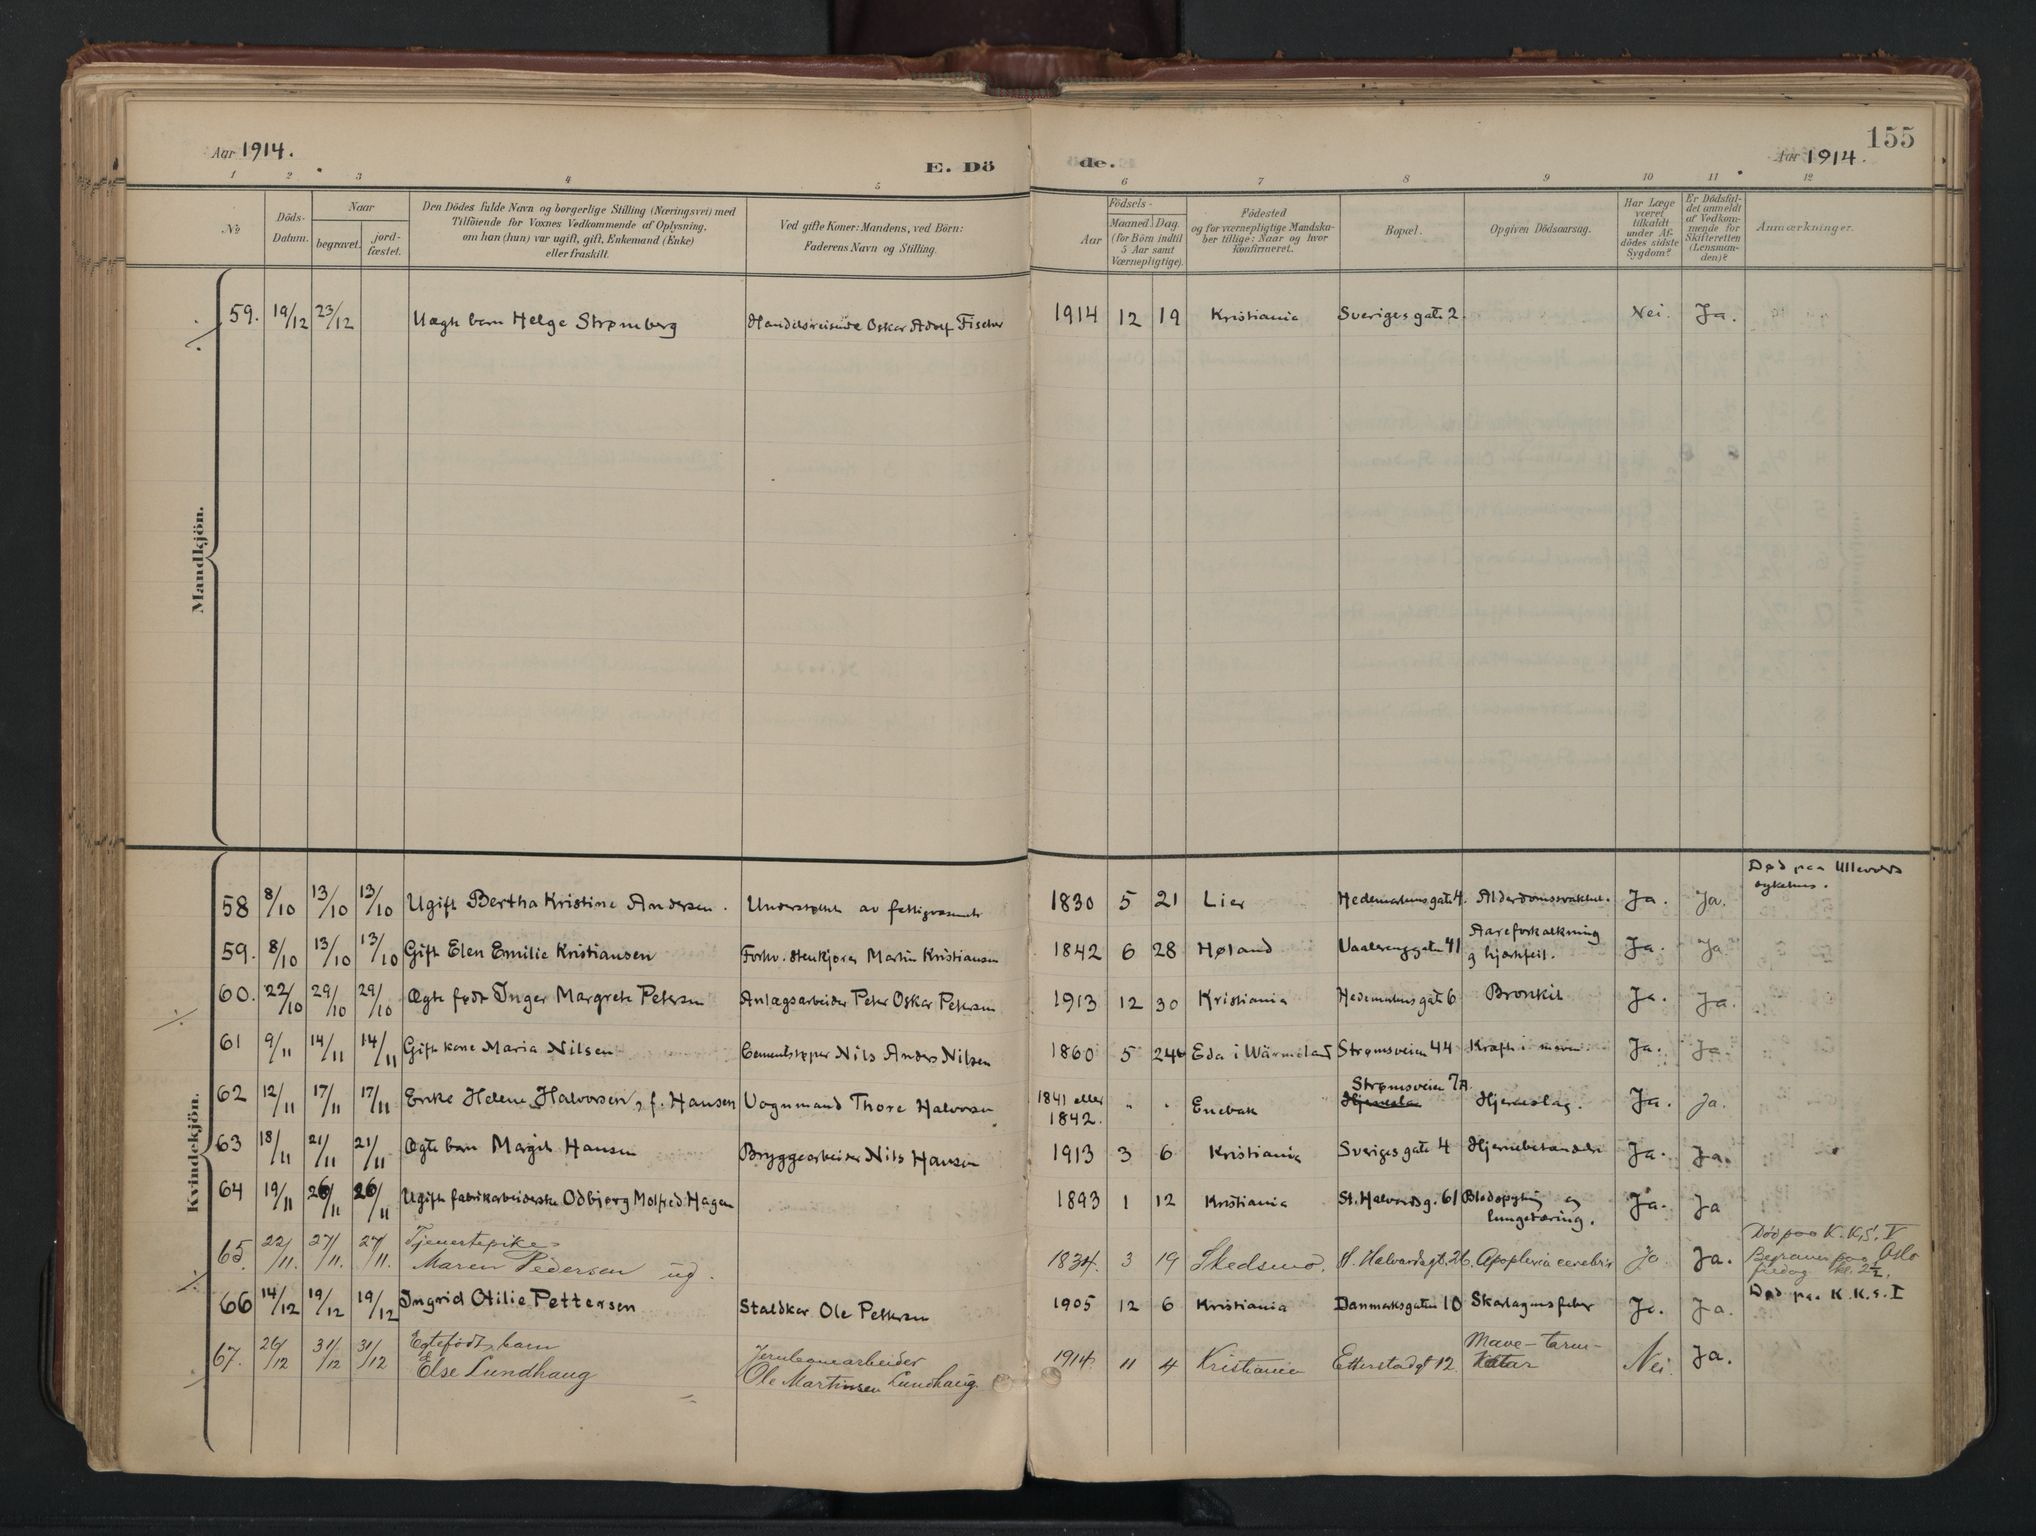 Aar 1914.
E. Dö
de.
155
Aar 1914.
1 2 3 4 5 6 7 8 9 10 11 12
No
Döds-Datum.
Naar
begravet.
jord-fæstet.
Den Dödes fulde Navn og borgerlige Stilling (Næringsvei) med
Tilföiende for Voxnes Vedkommende af Oplysning,
om han (hun) var ugift, gift, Enkemand (Enke)
eller fraskilt.
Ved gifte Koner: Mandens, ved Börn:
Faderens Navn og Stilling.
Födsels-
Aar
Maaned. Dag.
(for Börn indtil
5 Aar samt
Værnepligtige).
Födested
og for værnepligtige Mandska-
ber tillige: Naar og hvor
konfirmeret.
Bopæl.
Opgiven Dödsaarsag.
Har Læge
været
tilkaldt
under Af-
dödes sidste
Sygdom?
Er Dödsfal-
det anmeldt
af Vedkom-
mende for
Skifteretten
(Lensman-
den)?
Anmærkninger.
Mandkjön.
59. 19/12 23/12 Uægte barn Helge Strømberg Handelsreisende Oskar Adolf Fischer 1914 12 19 Kristiania Sveriges gate 2. Nei. Ja.
Kvindekjön.
Død paa Ullevaals
sykehus.
58 8/10 13/10 13/10 Ugift Bertha Kristine Andersen. Understøttet av fattigvæsenet 1830 5 21 Lier Hedemarkens gate 4. Alderdomssvakhet. Ja. Ja.
59. 8/10 13/10 13/10 Gift Elen Emilie Kristiansen Forhv. stenkjører Martin Kristiansen 1842 6 28 Høland Vaalerenggaten 41 Aareforkalkning
og hjertefeil. Ja. Ja
60. 22/10 29/10 29/10 Ægte født Inger Margrete Petersen Anlægsarbeider Peter Oskar Petersen 1913 12 30 Kristiania Hedemarkens gate 6 Bronkit Ja. Ja.
61 9/11 14/11 14/11 Gift kone Maria Nilsen Cementstøper Nils Anders Nilsen 1860 5 24 Eda i Wärmeland Strømsveien 44 Kræft i maven. Ja. Ja.
62 12/11 17/11 17/11 Enke Helene Halvorsen, f. Hansen Vognmand Thore Halvorsen 1841 eller
1842. " " Enebak Strømsveien 7A. Hjerneslag. Ja. Ja.
63 18/11 21/11 21/11 Ægte barn Margit Hansen Bryggearbeider Nils Hansen 1913 3 6 Kristiania Sveriges gate 4 Hjernebetændelse Ja. Ja.
64 19/11 26/11 26/11 Ugift fabrikarbeiderske Odbjørg Molfred Hagen 1893 1 12 Kristiania St. Halvardsg. 61 Blodspytning og
lungetæring. Ja. Ja
65. 22/11. 27/11. 27/11. Tjenertepike
Maren Pedersen ug. 1834. 3 19 Skedsmo. St. Halvardsgt. 26. Apoplexia cerebri Ja Ja. Død paa K.K.S. V
Begraves paa Oslo
fredag kl. 2½.
66 14/12 19/12 19/12 Ingrid Otilie Pettersen Staldkar Ole Pettersen 1905 12 6 Kristiania Danmarksgaten 10 Skarlagensfeber Ja. Ja. Død paa K.K.S. I
67. 26/12 31/12 31/12 Egtefødt barn
Else Lundhaug Jernbanearbeider
Ole Martinsen Lundhaug. 1914. 11 4 Kristiania Etterstadgt 12 Mave-tarm-
katar Nei. Ja.